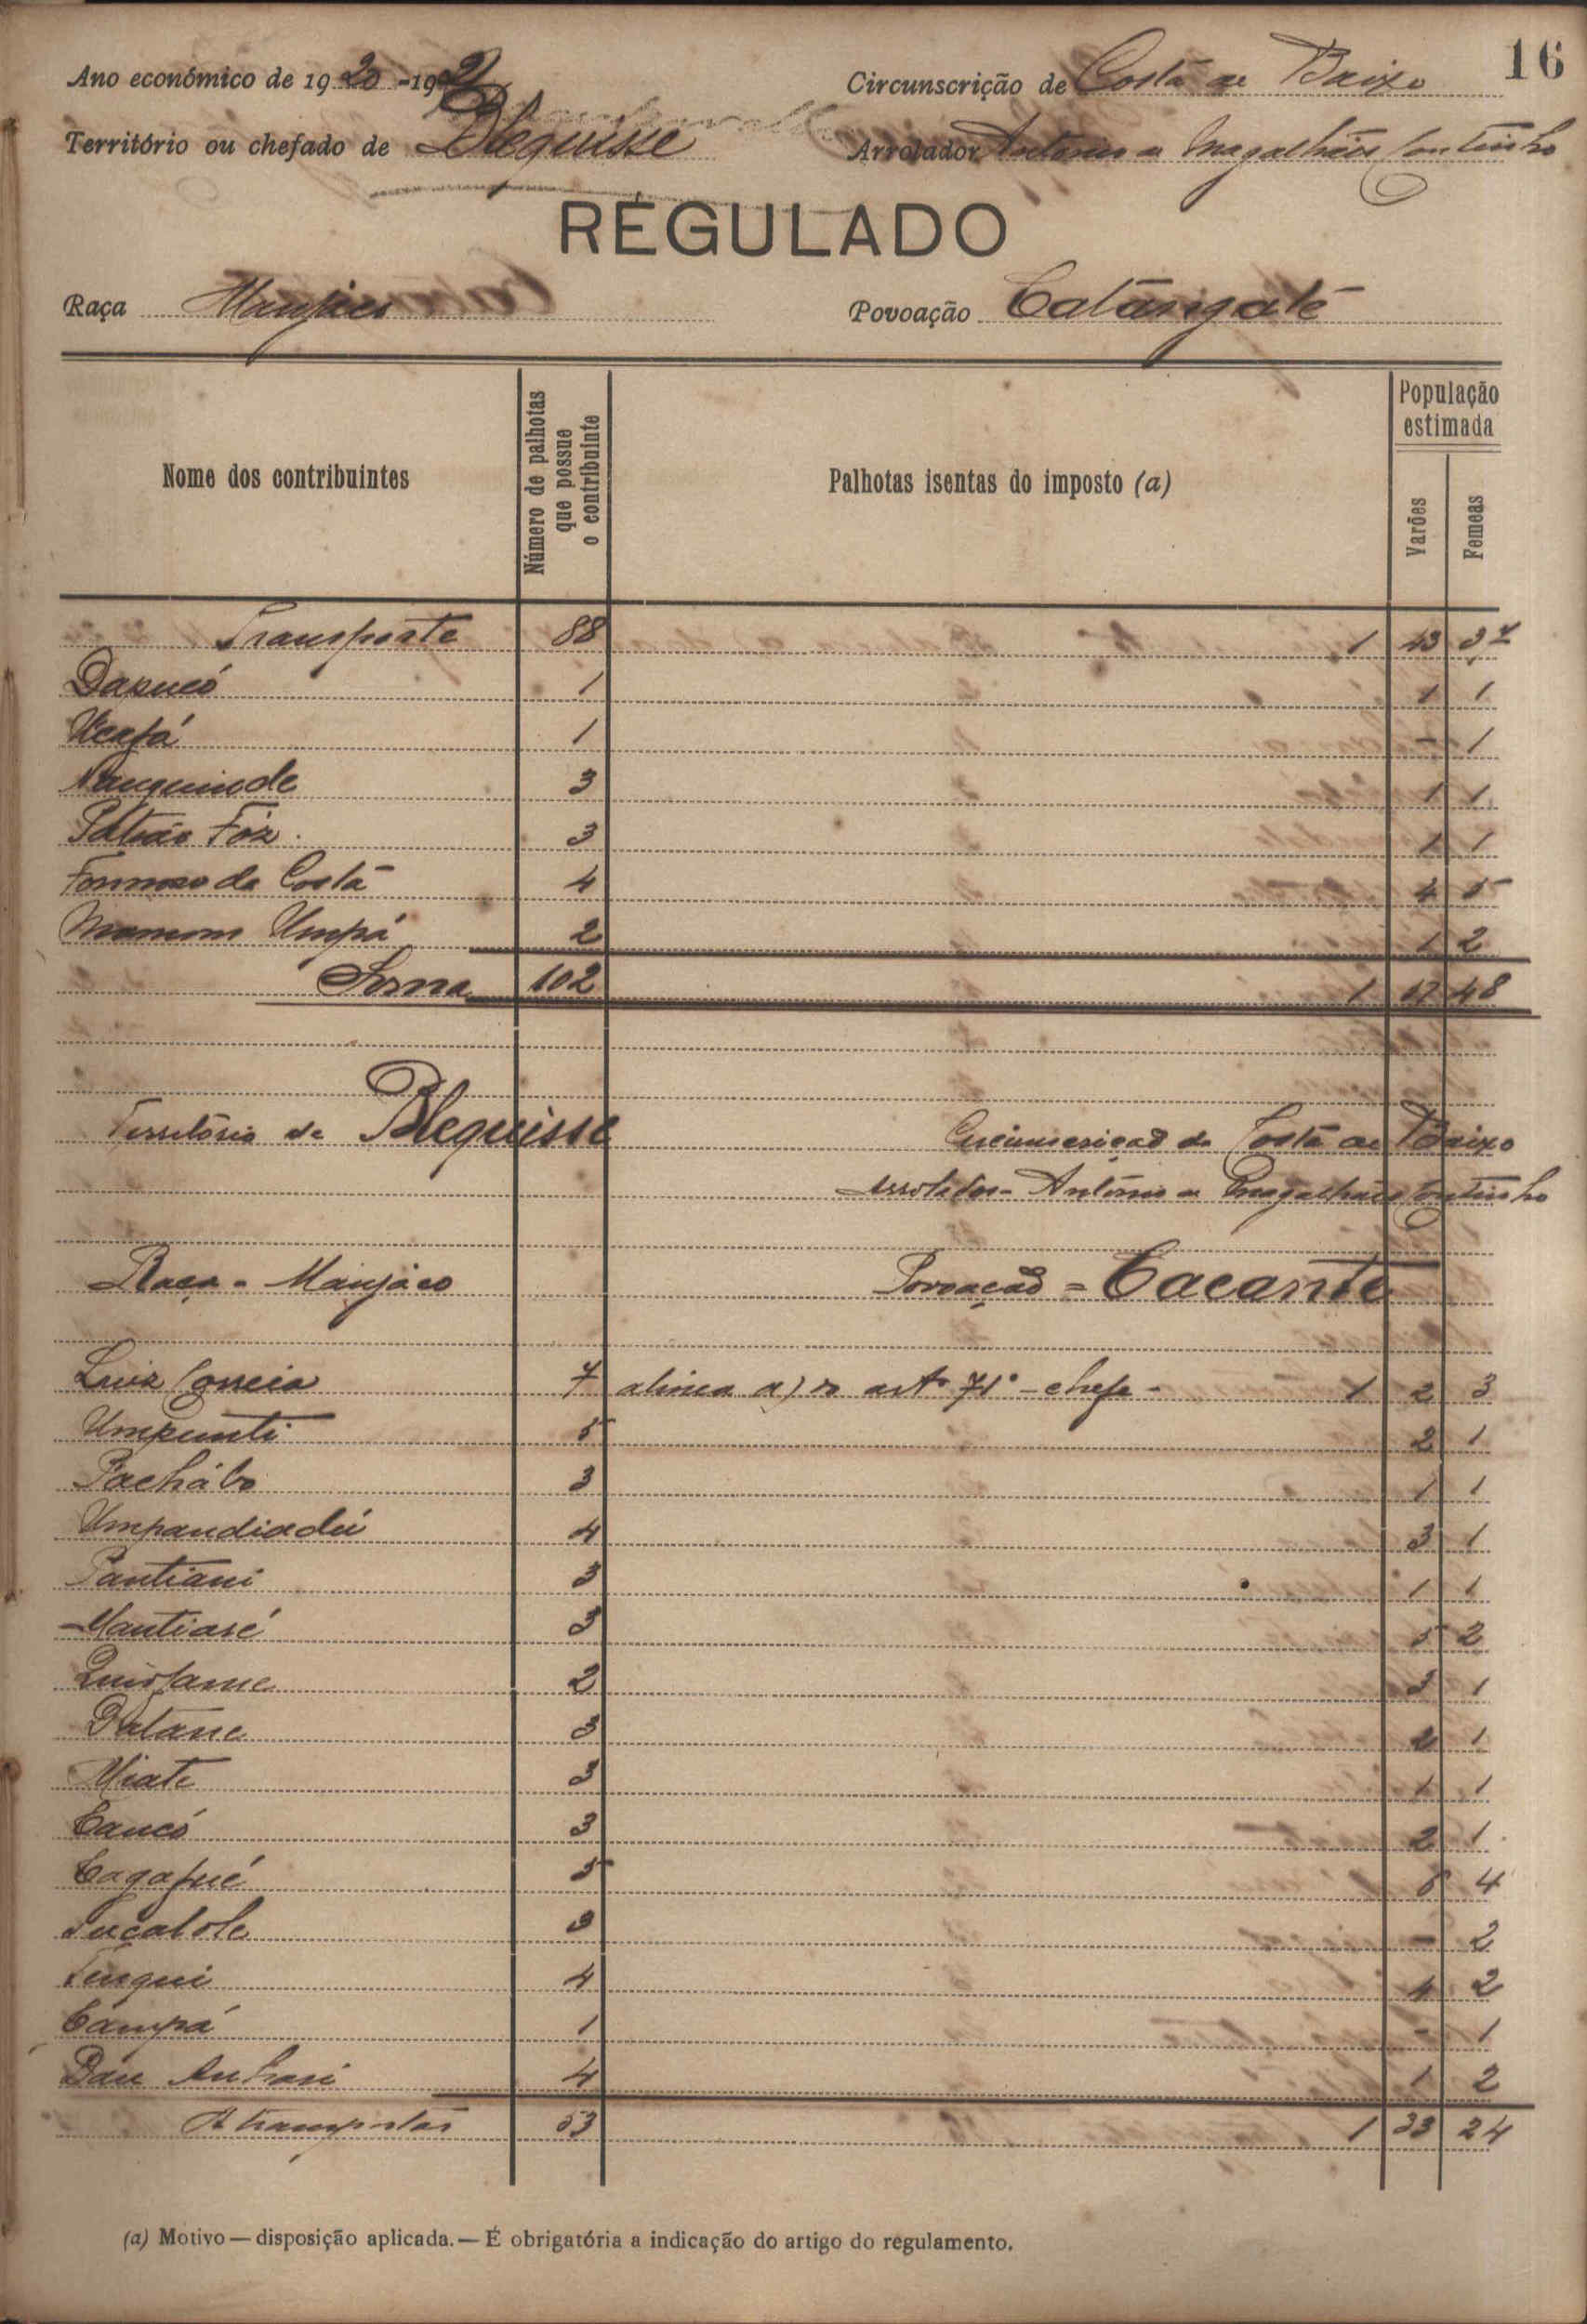 16
Ano económico de 1920-1921 Circunscrição de Costa de Baixo
Território ou chefado de Bleguisse Arrolador António de Magalhães Coutinho
REGULADO
Raça Manjaco Povoação Catângaté
Nome dos contribuintes
Número de palhotas que possue o contribuinte
Palhotas isentas do imposto (a)
População estimada
Varões
Femeas
Transporte 88 1 43 37
1 1 1
1 - 1
3 1 1
3 1 1
Formoso da Costa 4 4 5
Umpá 2 1 2
Soma 102 1 48
Território de Bleguisse Circunscrição de Costa de Baixo
Arrolador - António de Magalhães Coutinho
Raça - Manjáco Povoação = Cacante
Luiz Correia 7 alinea a) do artº 71º - chefe - 1 2 3
Umpunti 5 2 1
Pachábo 3 1 1
Umpandiadú 4 3 1
Pantiani 3 1 1
Mantiasé 3 5 2
2 3 1
Datane 3 2 1
Miate 3 1 1
Cancó 3 2 1
Cagafué 5 5 4
3 - 2
4 4 2
Campá 1 - 1
4 1 2
A transportar 53 1 33 24
(a) Motivo — disposição aplicada. — É obrigatória a indicação do artigo do regulamento.